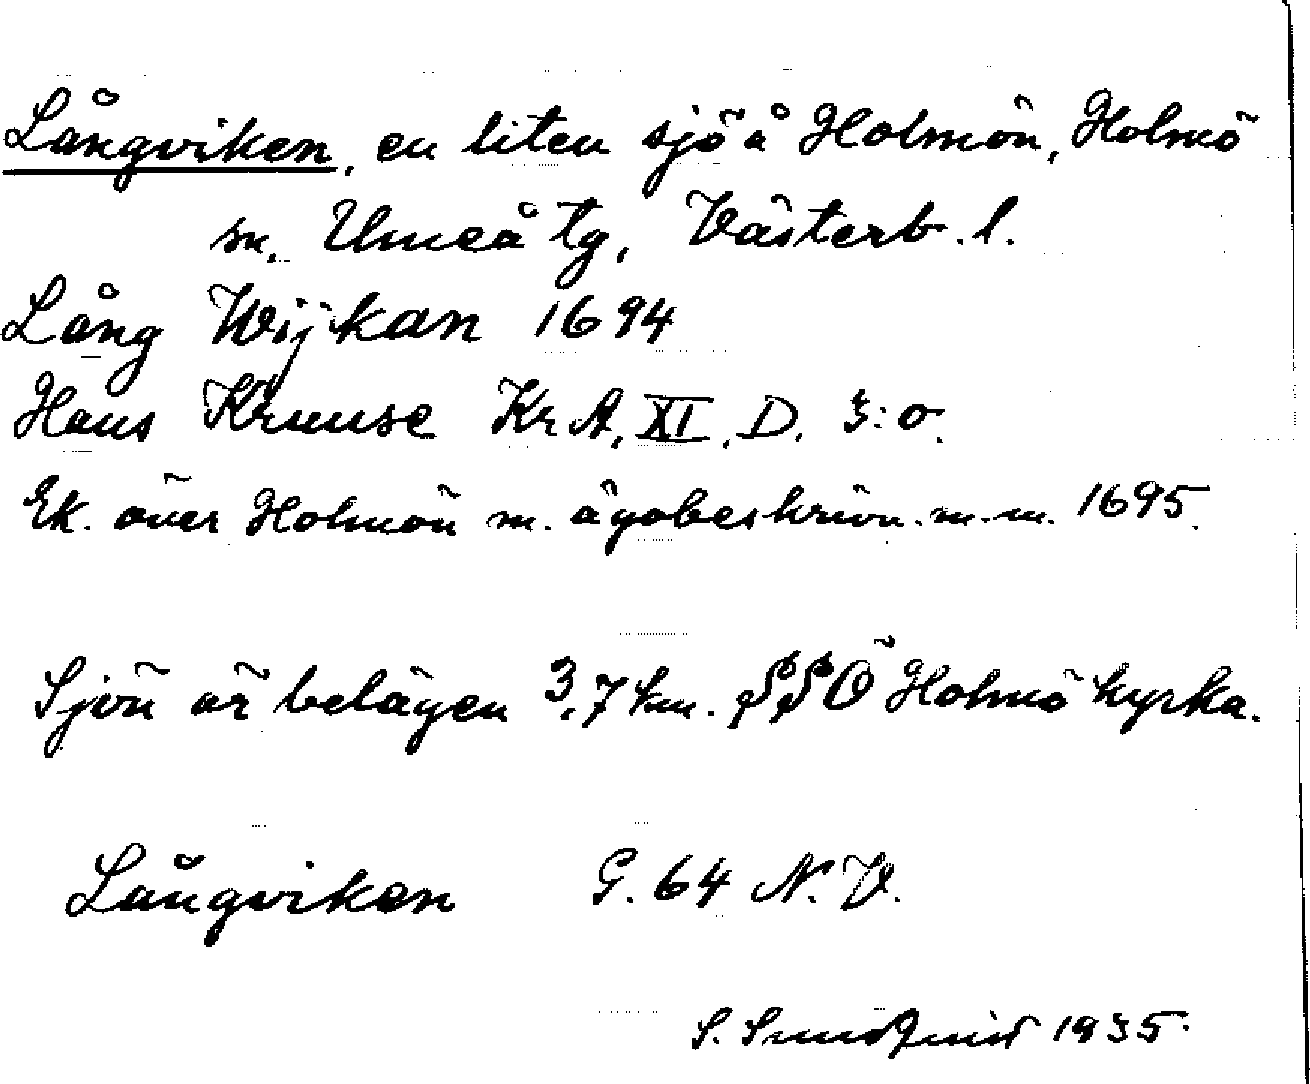 Långviken, en liten sjö å Holmön, Holmö
sn, Umeå tg, Västerb. l.
Lång Wijkan 1694
Hans Kruuse Kr A, XI, D. 3:o.
Ek. över Holmön m. ägobeskrivn. m. m. 1695.
Sjön är belägen 3,7 km. SSÖ Holmö kyrka.
Långviken G. 64 N. V.
S. Sundqvist 1935.